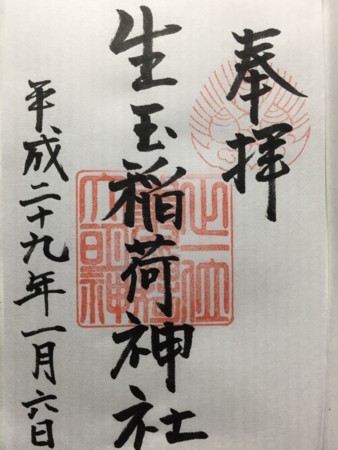 奉拝
生玉稲荷神社
平成二十九年一月六日